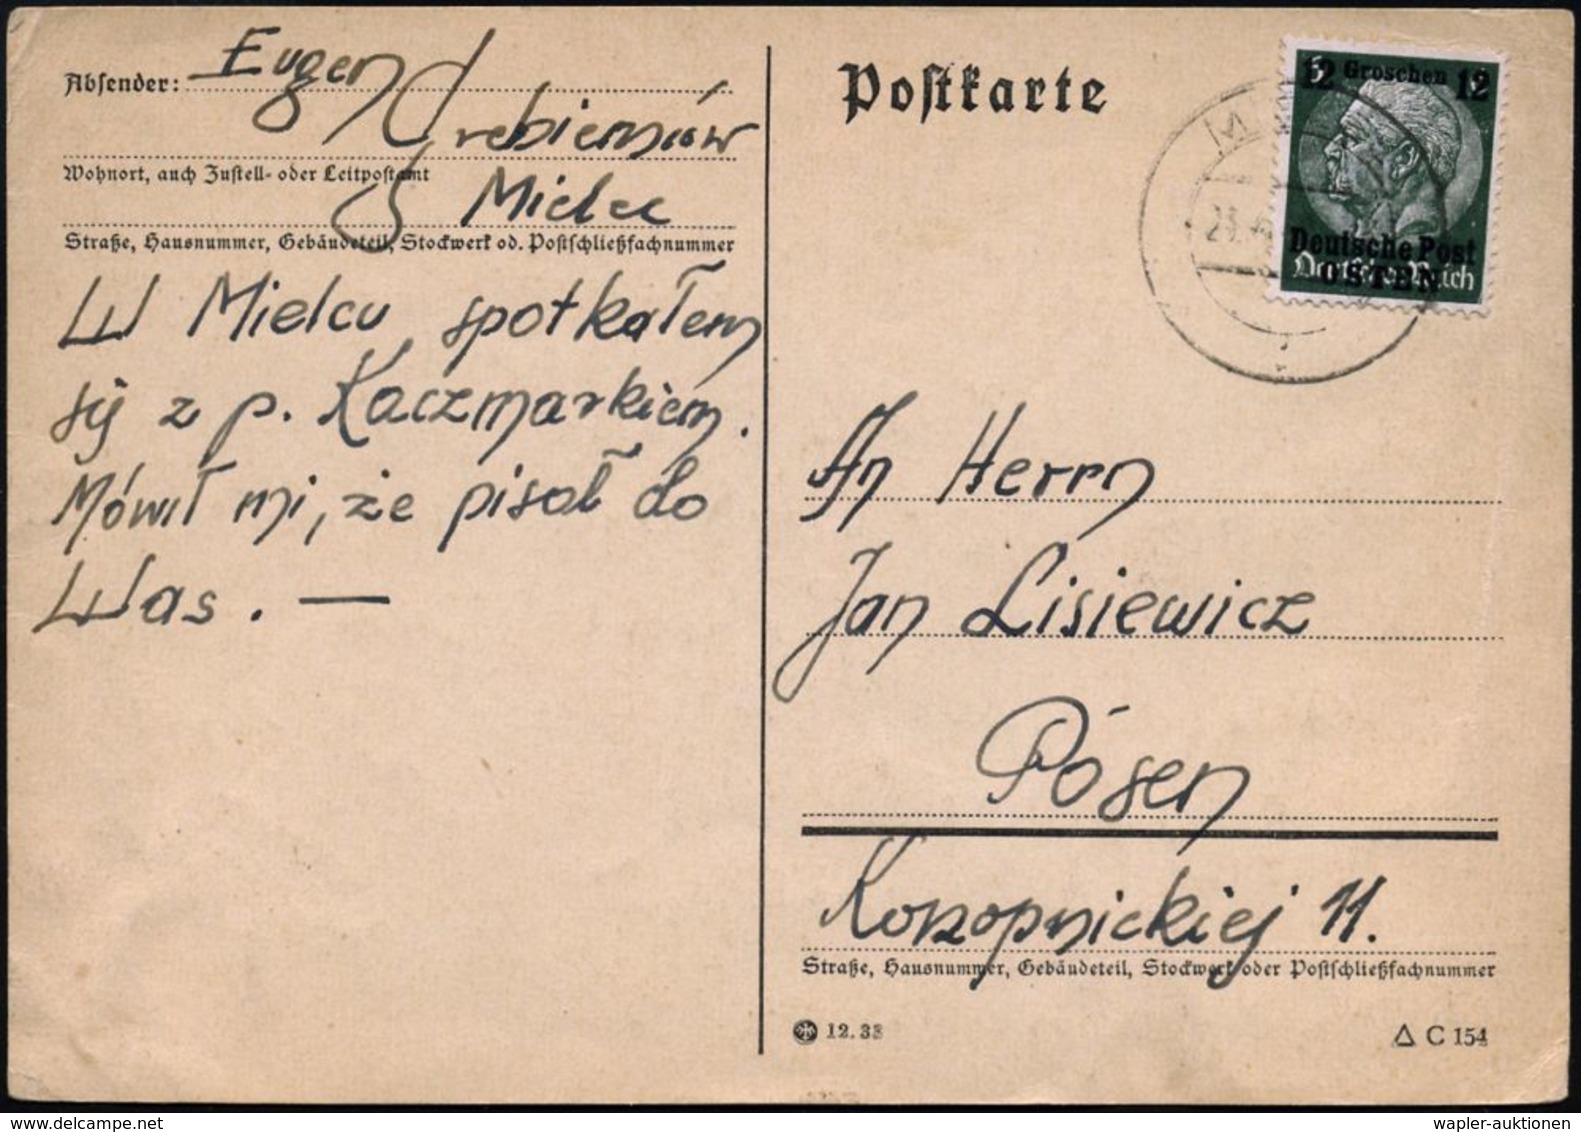 Absender: Eugen
Wohnort, auch Zustell- oder Leitpostamt
Mielec
Straße, Hausnummer, Gebäudeteil, Stockwerk od. Postschließfachnummer
W Mielcu spotkałem
się z p. Kaczmarkiem.
Mówił mi, że pisał do
Was. —
Postkarte
12 Groschen 12
Deutsche Post
OSTEN
Deutsches Reich
An Herrn
Jan Lisiewicz
Pósen
Konopnickiej 11.
Straße, Hausnummer, Gebäudeteil, Stockwerk oder Postschließfachnummer
12.38
△ C 154
wapler-auktionen